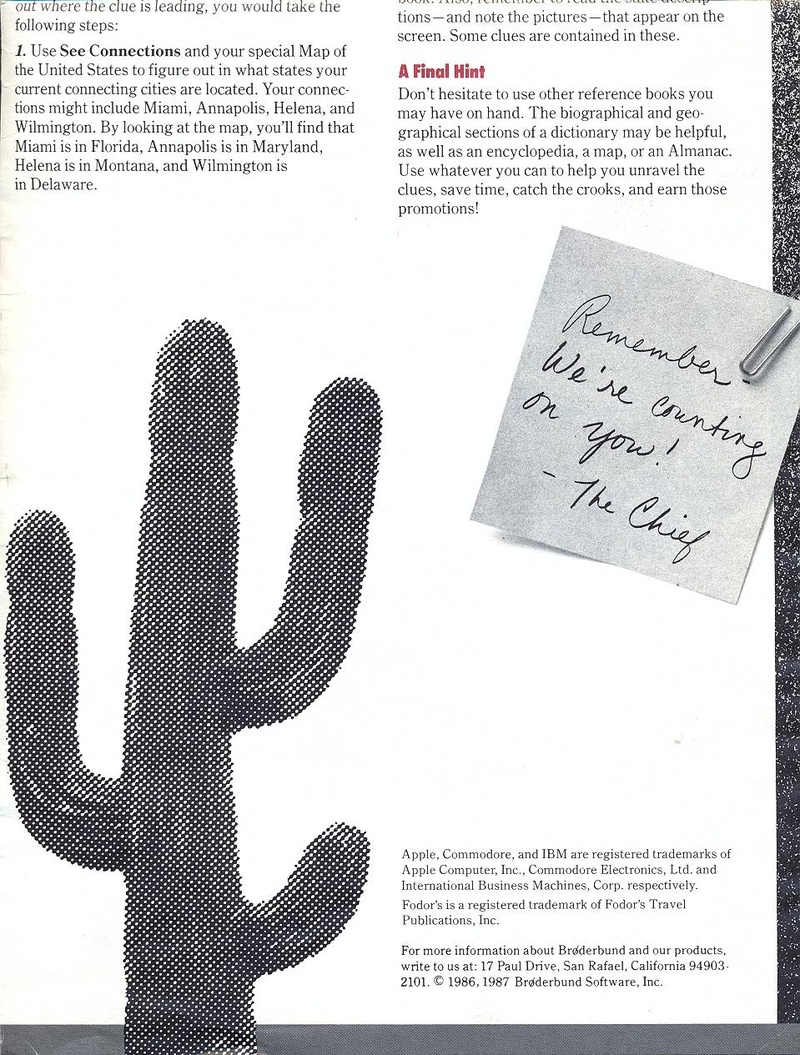 out where the clue is leading, you would take the
following steps:
1. Use See Connections and your special Map of
the United States to figure out in what states your
current connecting cities are located. Your connec-
tions might include Miami, Annapolis, Helena, and
Wilmington. By looking at the map, you'll find that
Miami is in Florida, Annapolis is in Maryland,
Helena is in Montana, and Wilmington is
in Delaware.
book. Also, remember to read the state descrip-
tions—and note the pictures—that appear on the
screen. Some clues are contained in these.
A Final Hint
Don't hesitate to use other reference books you
may have on hand. The biographical and geo-
graphical sections of a dictionary may be helpful,
as well as an encyclopedia, a map, or an Almanac.
Use whatever you can to help you unravel the
clues, save time, catch the crooks, and earn those
promotions!
Remember-
We're counting
on you!
- The Chief
Apple, Commodore, and IBM are registered trademarks of
Apple Computer, Inc., Commodore Electronics, Ltd. and
International Business Machines, Corp. respectively.
Fodor's is a registered trademark of Fodor's Travel
Publications, Inc.
For more information about Brøderbund and our products,
write to us at: 17 Paul Drive, San Rafael, California 94903-
2101. © 1986, 1987 Brøderbund Software, Inc.